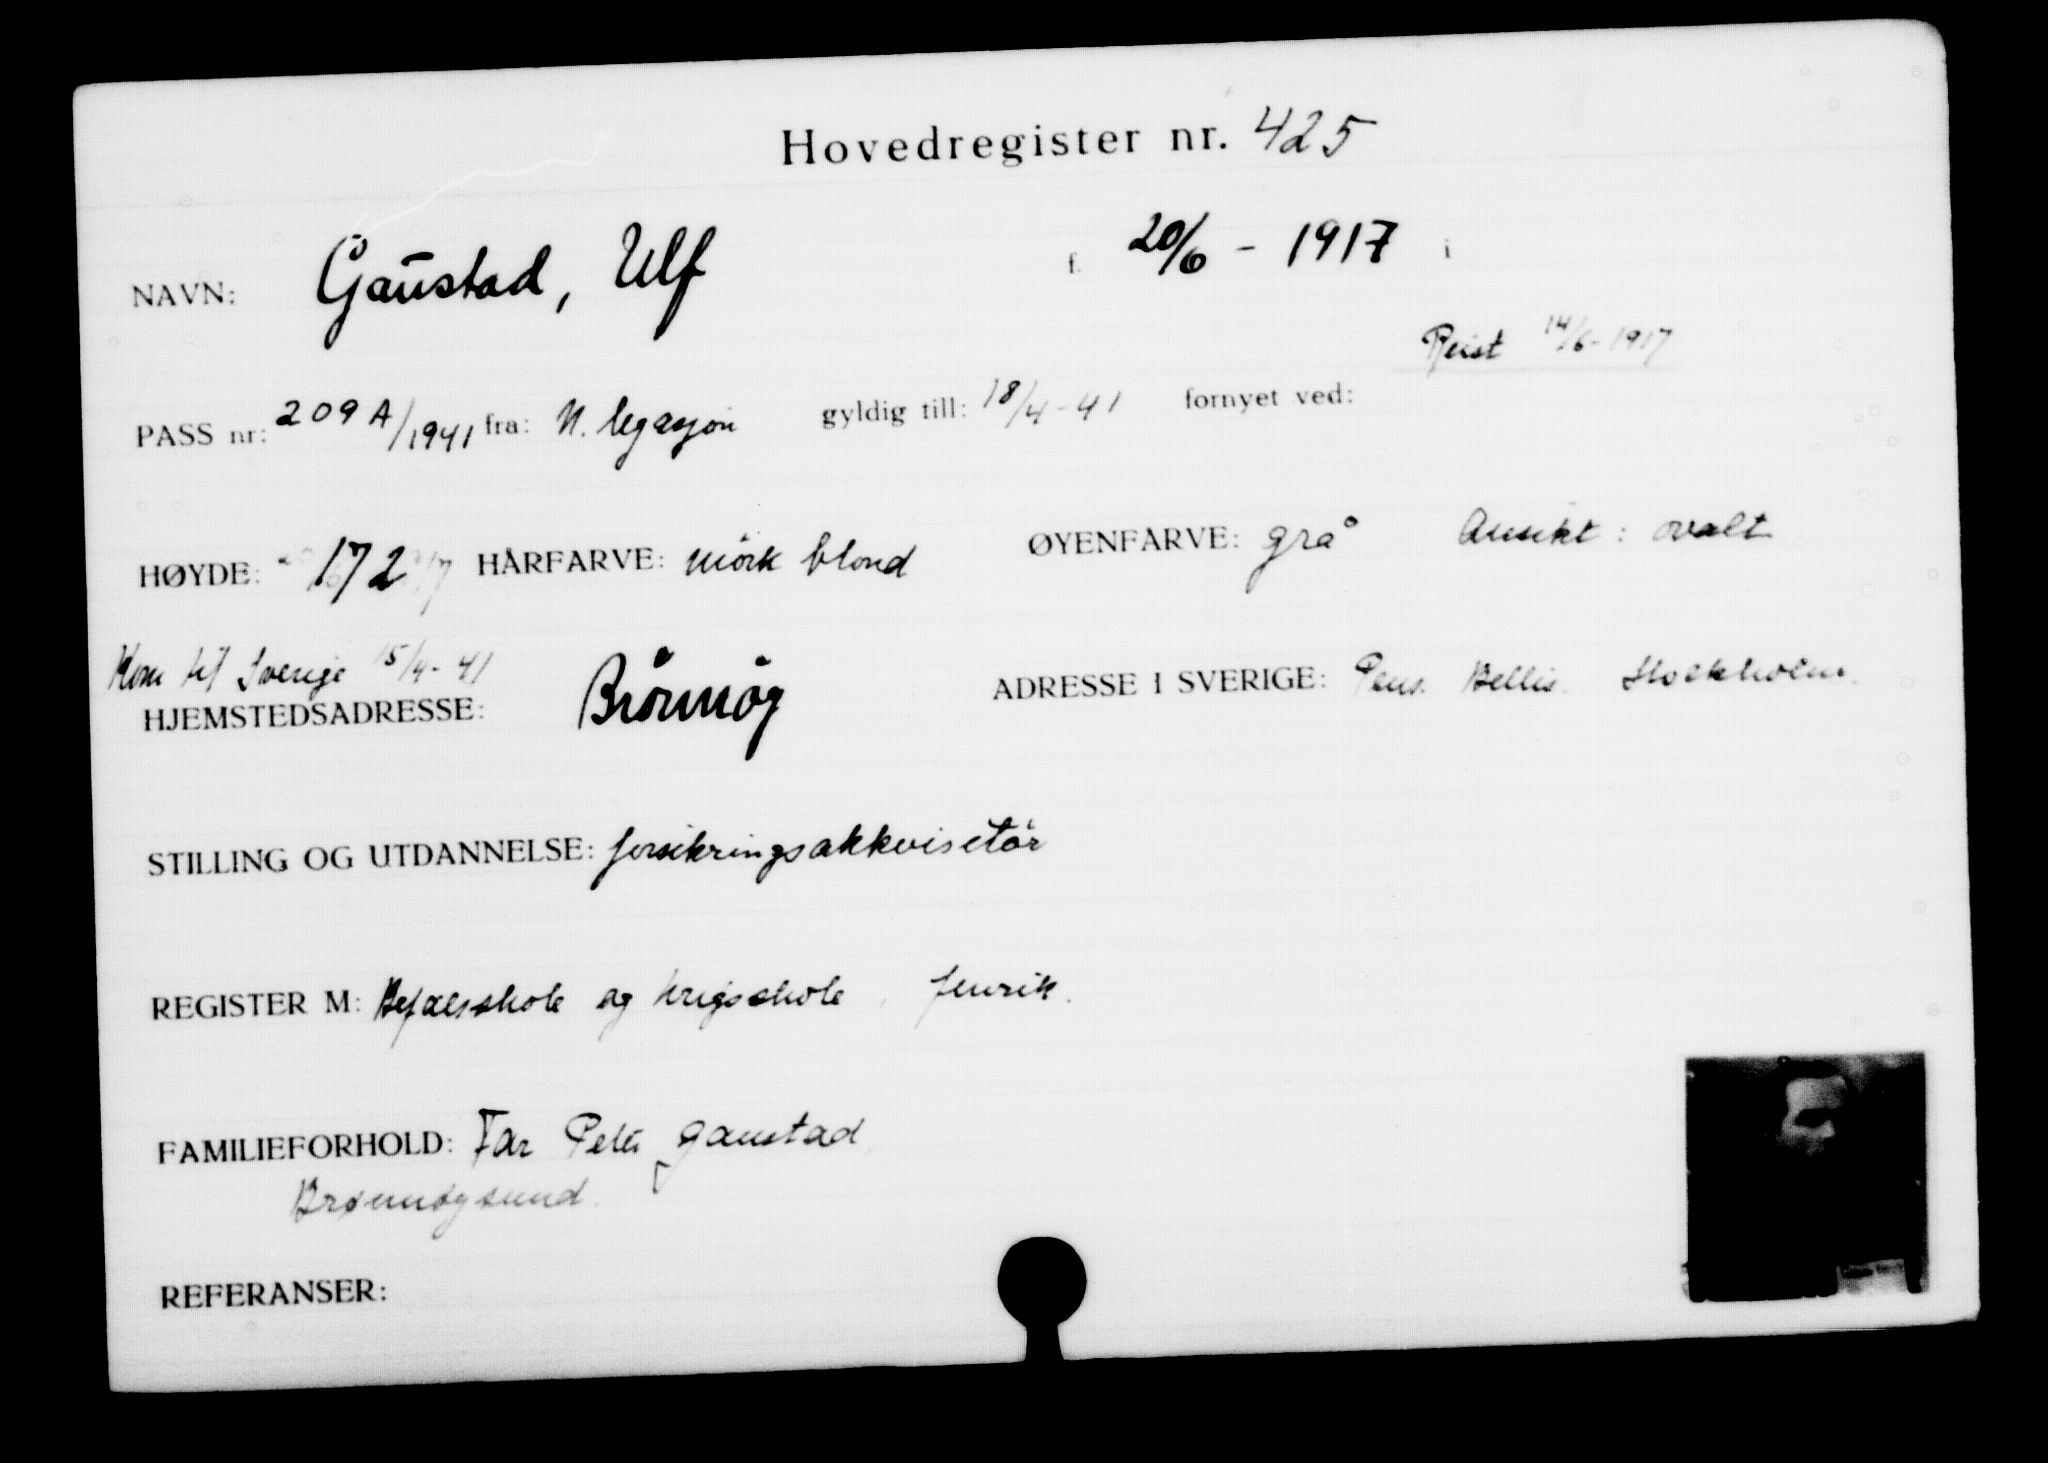 Hovedregister nr. 425
NAVN: Gaustad, Ulf f. 20/6 - 1917 i
Reist 14/6-1917
PASS nr: 209 A/1941 fra: N. legasjon gyldig till: 18/4-41 fornyet ved:
HØYDE: 172 HÅRFARVE: mörk blond ØYENFARVE: grå Ansikt: ovalt
Kom til Sverige 15/4-41
HJEMSTEDSADRESSE: Brönnöy ADRESSE I SVERIGE: Pens. Bellis. Stockholm.
STILLING OG UTDANNELSE: forsikringsakkvisitör
REGISTER M: Befalsskole og krigsskole, fenrik.
FAMILIEFORHOLD: Far Peter Gaustad
Brønnøysund.
REFERANSER: